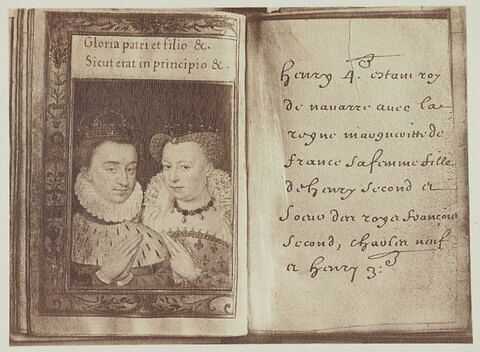 Gloria patri et filio &.
Sicut erat in principio &.
henry 4.e estant roy
de nauarre auec la
reyne margueritte de
france sa femme fille
de henry second et
soeur des roys françois
second, charles neuf
et henry 3.e